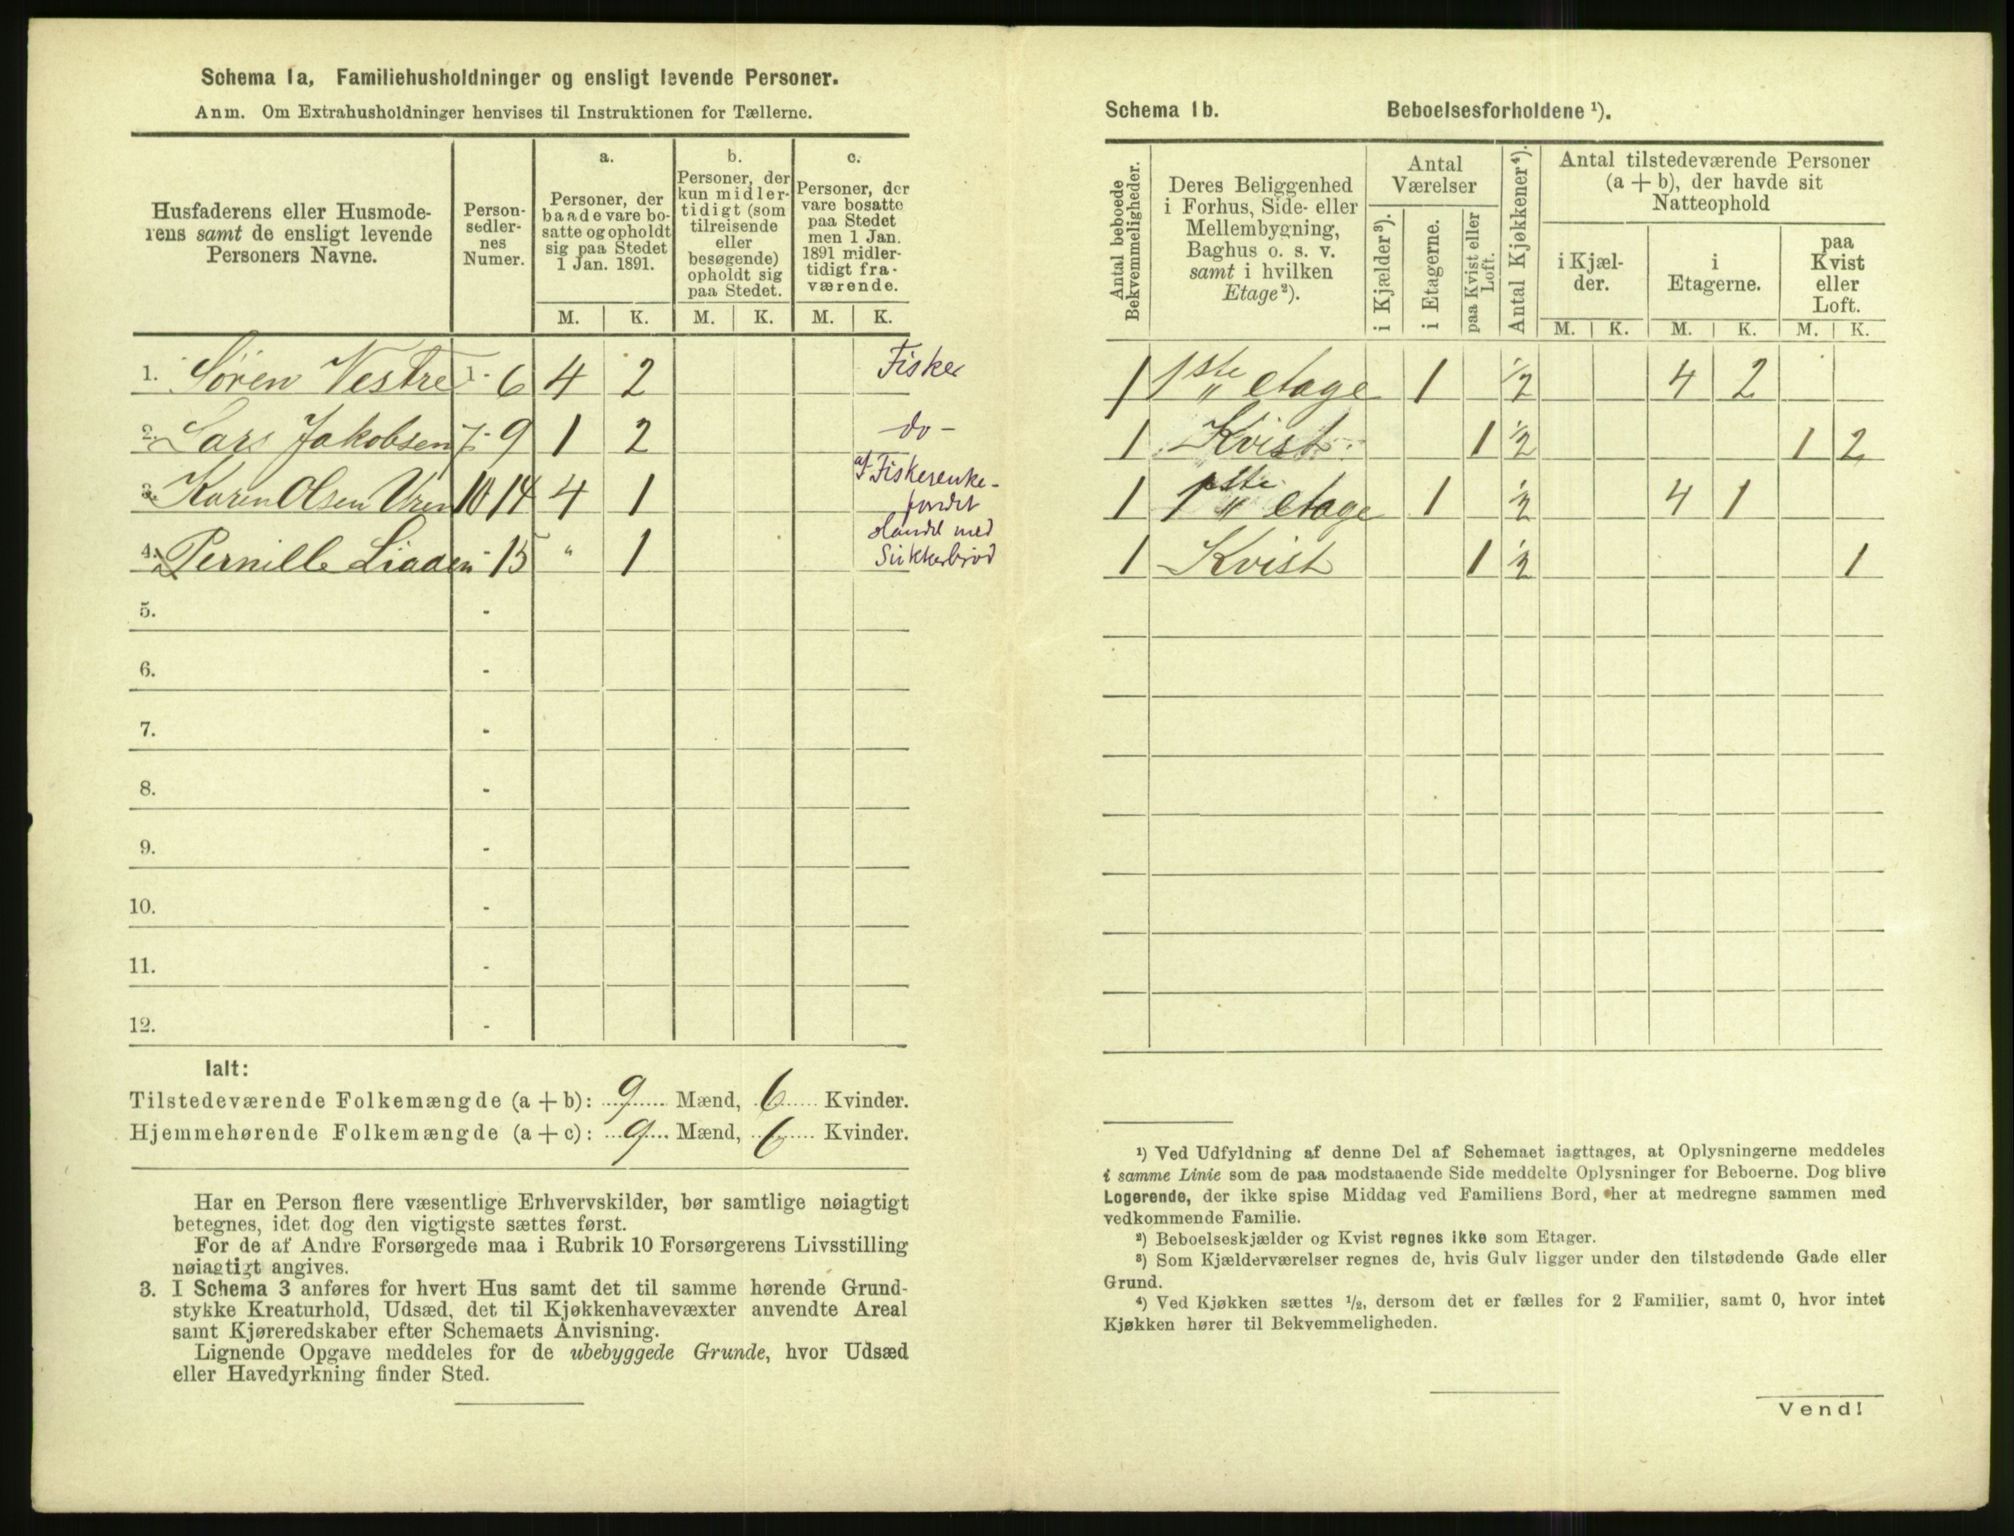 Schema 1a, Familiehusholdninger og ensligt levende Personer.
Anm. Om Extrahusholdninger henvises til Instruktionen for Tællerne.
Husfaderens eller Husmode-
rens samt de ensligt levende
Personers Navne.
Person-
sedler-
nes
Numer.
a.
Personer, der
baade vare bo-
satte og opholdt
sig paa Stedet
1 Jan. 1891.
b.
Personer, der
kun midler-
tidigt (som
tilreisende
eller
besøgende)
opholdt sig
paa Stedet.
c.
Personer, der
vare bosatte
paa Stedet
men 1 Jan.
1891 midler-
tidigt fra-
værende.
M. K. M. K. M. K.
1. Søren Vestre 1 - 6 4 2 Fisker
2. Lars Jakobsen 7 - 9 1 2 do -
3. Karen Olsen Vren 10 - 14 4 1 af Fiskerenke-
fondet
4. Pernille Liaaen - 15 " 1 Handel med
Sukkerbrød
5. -
6. -
7. -
8. -
9. -
10. -
11. -
12. -
Ialt:
Tilstedeværende Folkemængde (a + b): 9 Mænd, 6 Kvinder.
Hjemmehørende Folkemængde (a + c): 9 Mænd, 6 Kvinder.
Har en Person flere væsentlige Erhvervskilder, bør samtlige nøiagtigt
betegnes, idet dog den vigtigste sættes først.
For de af Andre Forsørgede maa i Rubrik 10 Forsørgerens Livsstilling
nøiagtigt angives.
3. I Schema 3 anføres for hvert Hus samt det til samme hørende Grund-
stykke Kreaturhold, Udsæd, det til Kjøkkenhavevæxter anvendte Areal
samt Kjøreredskaber efter Schemaets Anvisning.
Lignende Opgave meddeles for de ubebyggede Grunde, hvor Udsæd
eller Havedyrkning finder Sted.
Schema 1b. Beboelsesforholdene ¹).
Antal beboede
Bekvemmeligheder.
Deres Beliggenhed
i Forhus, Side- eller
Mellembygning,
Baghus o. s. v.
samt i hvilken
Etage²).
Antal
Værelser
i Kjælder³).
i Etagerne.
paa Kvist eller
Loft.
Antal Kjøkkener⁴).
Antal tilstedeværende Personer
(a + b), der havde sit
Natteophold
i Kjæl-
der.
i
Etagerne.
paa
Kvist
eller
Loft.
M. K. M. K. M. K.
1 1ste etage 1 ½ 4 2
1 Kvist 1 ½ 1 2
1 1ste etage 1 ½ 4 1
1 Kvist 1 ½ 1
¹) Ved Udfyldning af denne Del af Schemaet iagttages, at Oplysningerne meddeles
i samme Linie som de paa modstaaende Side meddelte Oplysninger for Beboerne. Dog blive
Logerende, der ikke spise Middag ved Familiens Bord, her at medregne sammen med
vedkommende Familie.
²) Beboelseskjælder og Kvist regnes ikke som Etager.
³) Som Kjælderværelser regnes de, hvis Gulv ligger under den tilstødende Gade eller
Grund.
⁴) Ved Kjøkken sættes ½, dersom det er fælles for 2 Familier, samt 0, hvor intet
Kjøkken hører til Bekvemmeligheden.
Vend!